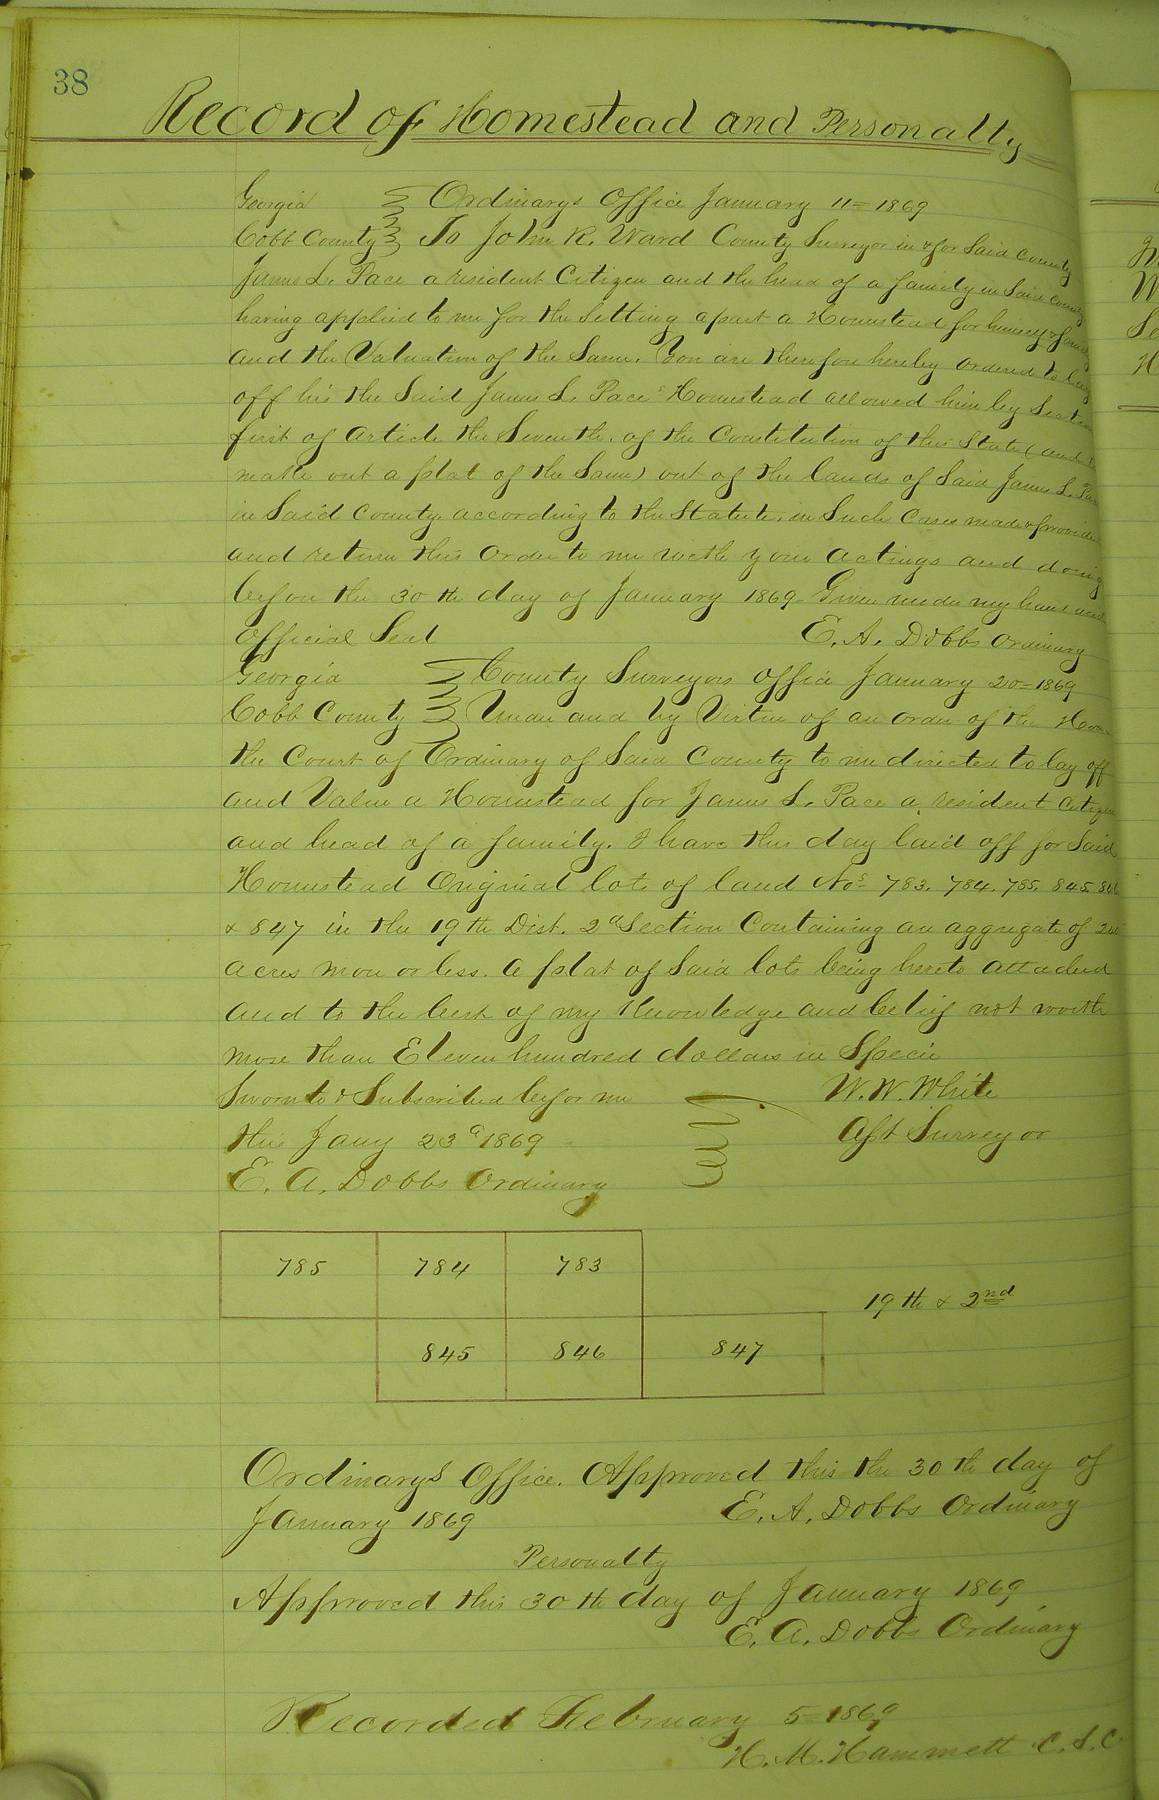 38
Record of Homestead and Personalty
Georgia Ordinarys Office January 11= 1869
Cobb County To John R. Ward County Surveyor in & for Said County
James L. Pace a resident Citizen and the head of a family in Said County
having applied to me for the Setting apart a Homestead for himself & family
and the Valuation of the Same. You are therefore hereby ordered to lay
off his the Said James L. Pace's Homestead allowed him by Section
first of Article the Seventh. of the Constitution of this State (and to
make out a plat of the Same) out of the lands of Said James L. Pace
in Said County. according to the Statute. in Such Cases made & provided
and return this order to me with your actings and doings
before the 30th day of January 1869 Given under my hand and
Official Seal E. A. Dobbs Ordinary
Georgia County Surveyors Office January 20= 1869
Cobb County Under and by Virtue of an order of the Hon
the Court of Ordinary of Said County to me directed to lay off
and Value a Homestead for James L. Pace a resident Citizen
and head of a family. I have this day laid off for Said
Homestead Original lots of land Nos 783. 784. 785. 845. 846
& 847 in the 19th Dist. 2d Section Containing an aggregate of
acres more or less. a plat of Said lots being hereto attached
and to the best of my Knowledge and belief not worth
more than Eleven hundred dollars in Specie
Sworn to & Subscribed before me W. W. White
this Jany 23d 1869 Asst Surveyor
E. A. Dobbs Ordinary
785 784 783
19th & 2nd
845 846 847
Ordinarys Office. Approved this the 30th day of
January 1869 E. A. Dobbs Ordinary
Personalty
Approved this 30th day of January 1869
E. A. Dobbs Ordinary
Recorded February 5= 1869
H. M. Hammett C. S. C.